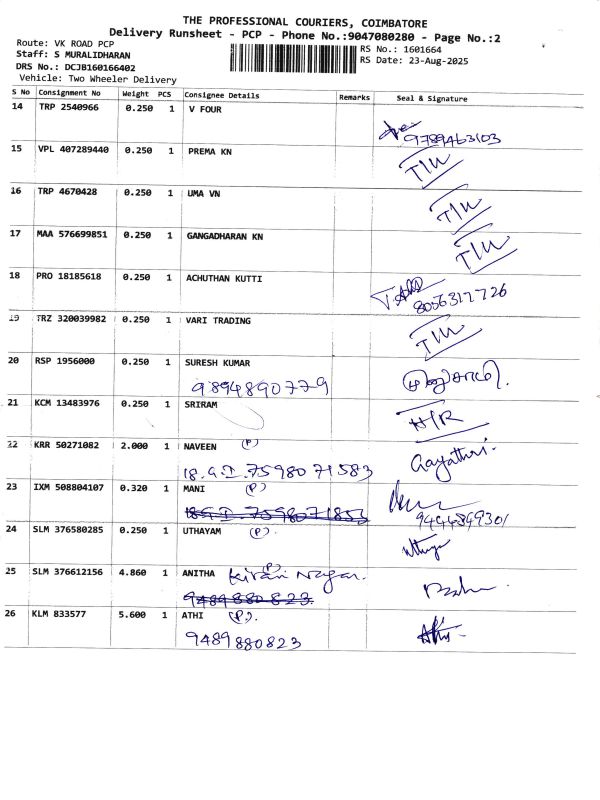 THE PROFESSIONAL COURIERS, COIMBATORE
Delivery Runsheet - PCP - Phone No.:9047080280 - Page No.:2
Route: VK ROAD PCP
Staff: S MURALIDHARAN
DRS No.: DCJB160166402
Vehicle: Two Wheeler Delivery
RS No.: 1601664
RS Date: 23-Aug-2025
S No Consignment No Weight PCS Consignee Details Remarks Seal & Signature
14 TRP 2540966 0.250 1 V FOUR
9789463103
15 VPL 407289440 0.250 1 PREMA KN
16 TRP 4670428 0.250 1 UMA VN
17 MAA 576699851 0.250 1 GANGADHARAN KN
18 PRO 18185618 0.250 1 ACHUTHAN KUTTI
8056317726
19 TRZ 320039982 0.250 1 VARI TRADING
20 RSP 1956000 0.250 1 SURESH KUMAR
9894890779
21 KCM 13483976 0.250 1 SRIRAM
H/R
22 KRR 50271082 2.000 1 NAVEEN (P) Gayathri.
18.G.I.7598071583
23 IXM 508804107 0.320 1 MANI (P)
18.G.I.7598071853 9444899301
24 SLM 376580285 0.250 1 UTHAYAM (P).
25 SLM 376612156 4.860 1 ANITHA (P) Kiran Nagar.
9489880823.
26 KLM 833577 5.600 1 ATHI (P).
9489880823